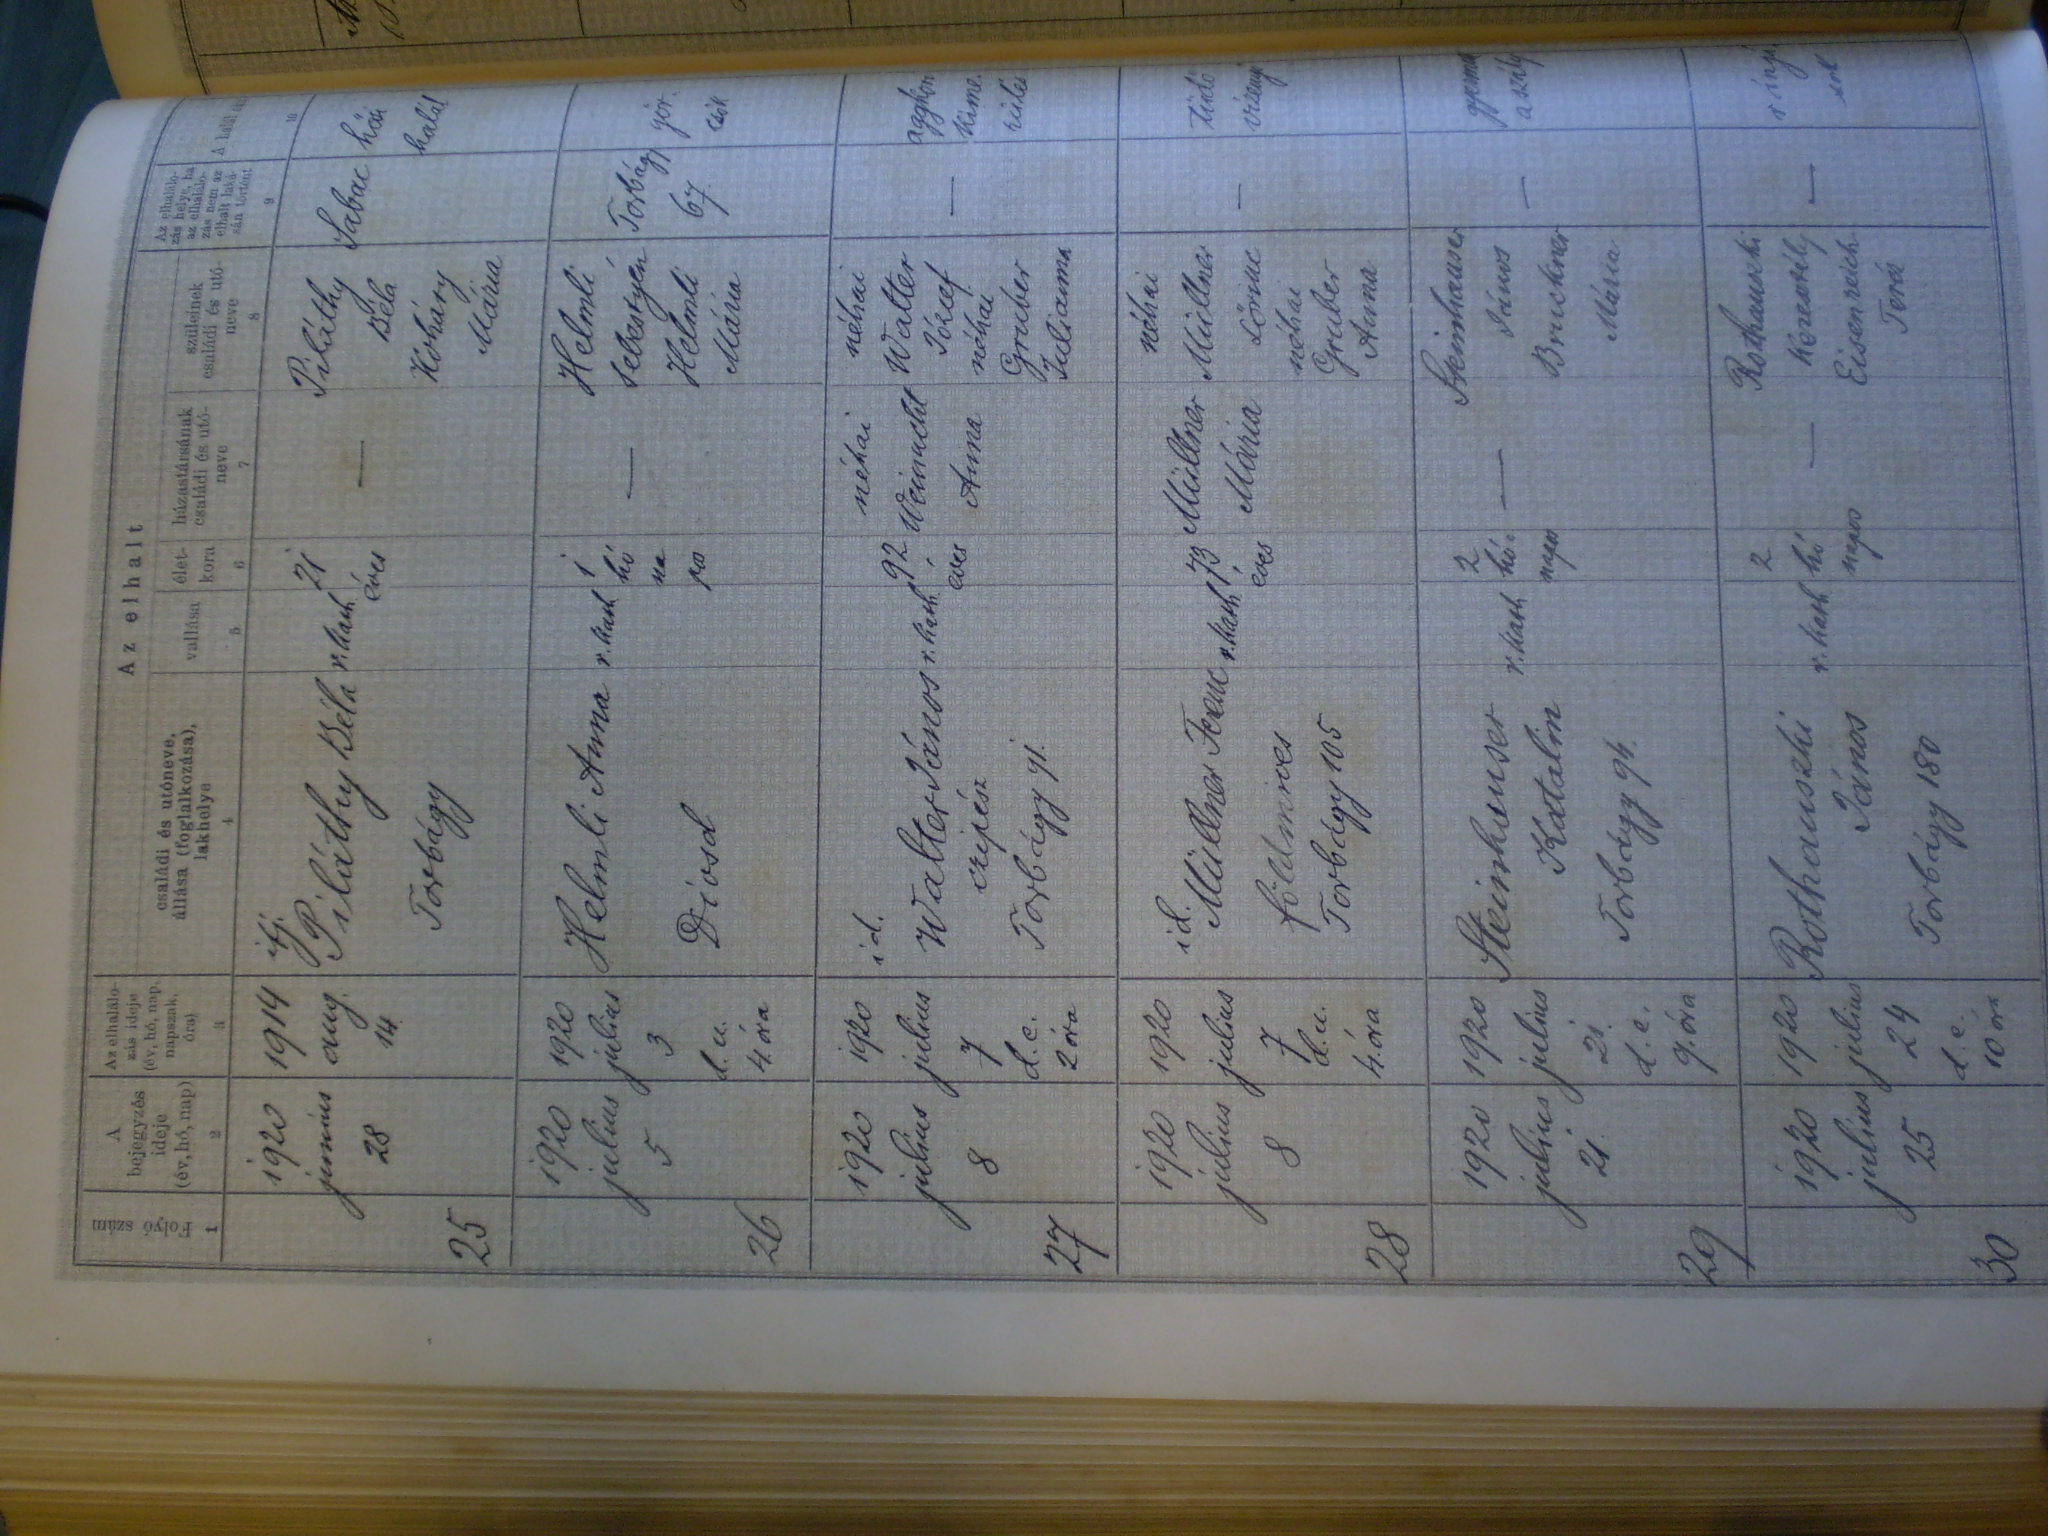 Az elhalt
Folyó szám
A bejegyzés ideje (év, hó, nap)
Az elhalálo-
zás ideje
(év, hó, nap,
napszak,
óra)
családi és utóneve,
állása (foglalkozása),
lakhelye
vallása
élet-
kora
házastársának
családi és utó-
neve
szüleinek
családi és utó-
neve
Az elhaláló-
zás helye, ha
az elhaláló-
zás nem az
elhalt laká-
sán történt
A halál
1
2
3
4
5
6
7
8
9
10
25
1920
június
28
1914
aug.
14.
ifj.
Piláthy Béla
Torbágy
r. kath
21
éves
—
Piláthy
Béla
Koháry
Mária
Sabac
hősi
halál
26
1920
július
5
1920
július
3
d. u.
4. óra
Helmli Anna
Diósd
r. kath
1
hó
na
pos
—
Helmli
Sebestyén
Helmli
Mária
Torbágy
67.
gör-
csök
27
1920
július
8
1920
július
7
d. e.
2 óra
id.
Walter János
czipész
Torbágy 91.
r. kath.
92
éves
néhai
Weinucht
Anna
néhai
Walter
József
néhai
Gruber
Julianna
—
aggkori
kime
rülés
28
1920
július
8
1920
július
7
d. u.
4. óra
id.
Müllner Ferenc
földmíves
Torbágy 105
r. kath
73
éves
Müllner
Mária
néhai
Müllner
Lőrinc
néhai
Gruber
Anna
—
tüdő
vizenyő
29
1920
július
21.
1920
július
21.
d. e.
9. óra
Steinhauser
Katalin
Torbágy 94.
r. kath
2
hó-
napos
—
Steinhauser
János
Bruckner
Mária
—
gyerme
aszály
30
1920
július
25
1920
július
24
d. e.
10 óra
Rothauszki
János
Torbágy 180
r. kath
2
hó
napos
—
Rothauszki
Eisenreich
Teréz
—